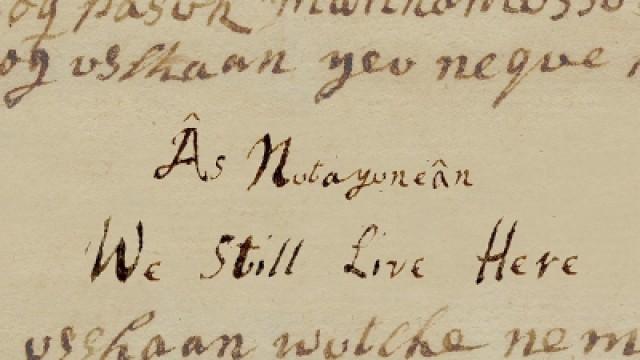 og pasuk
og ushaan yeu neque
Âs Nutayuneân
We Still Live Here
usshaan wutche nem